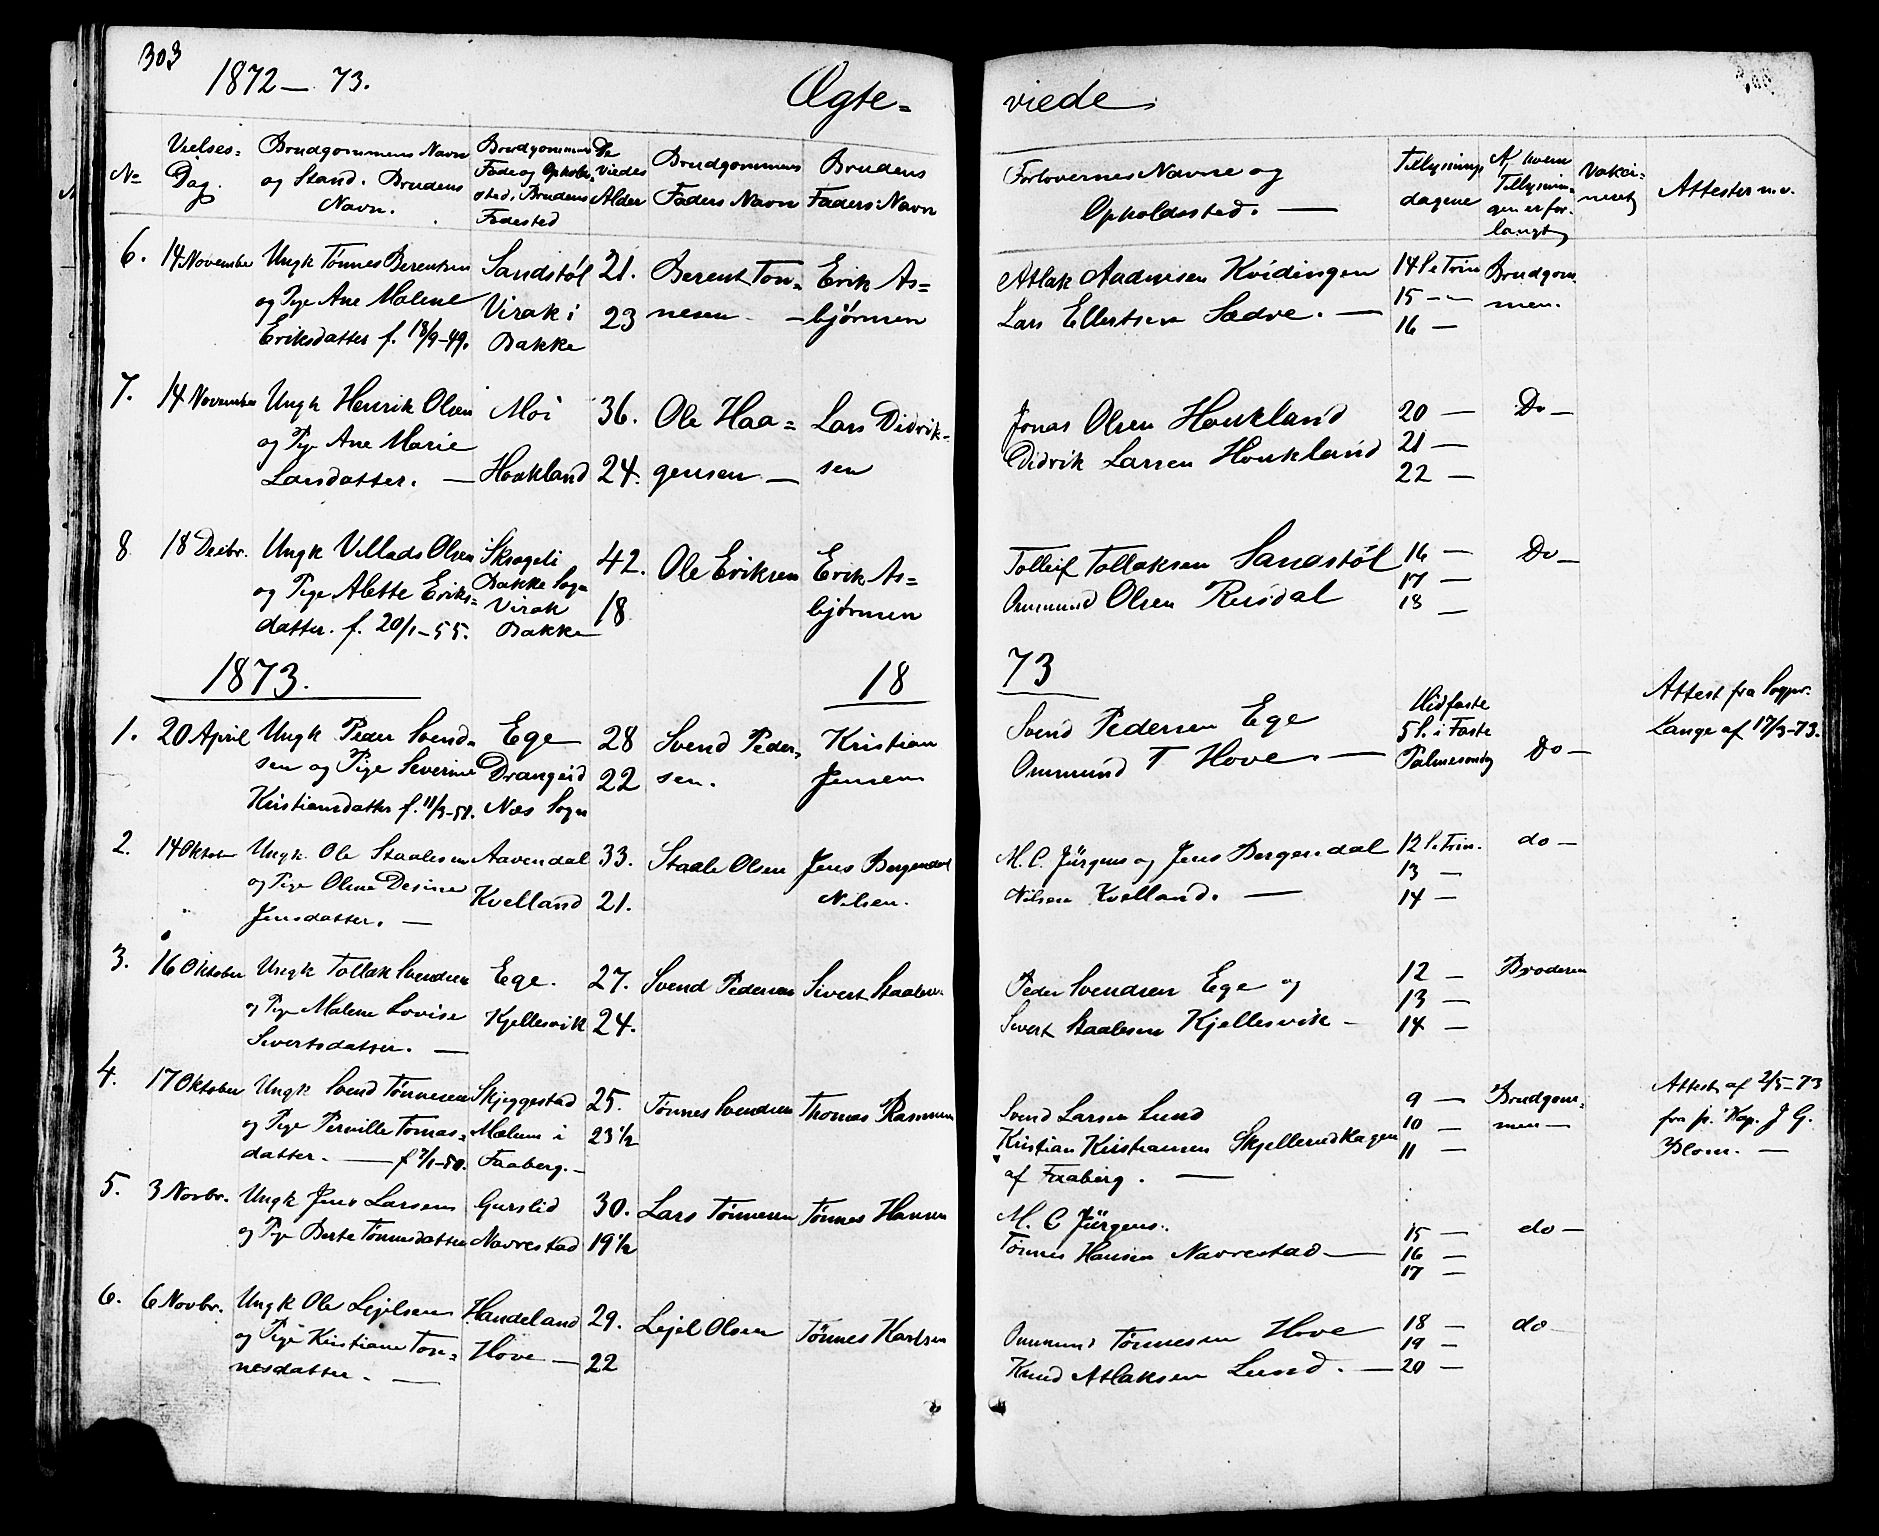 303
1872 — 73.
Ægte=
viede
No
Vielses=
Dag.
Brudgommens Navn
og Stand. Brudens
Navn.
Brudgommens
Føde og Opholds
sted, Brudens
Fødested
De
Viedes
Alder
Brudgommens
Faders Navn
Brudens
Faders Navn
Forlovernes Navne og
Opholdssted. —
Tillysnings
dagene
Af hvem
Tillysnin=
gen er for=
langt
Vakci=
neret
Attester m. v.
6. 14 November Ungk Tønnes Berentsen Sandstøl 21. Berent Tøn= Erik As=
og Pige Ane Malene Virak i 23 nesen — bjørnsen
Eriksdatter f. 18/9-49. Bakke
Atlak Aadnesen Kvidingen 14 S. e Trin Brudgom
Lars Ellertsen Sædve. — 15 — men.
16 —
7. 14 November Ungk Henrik Olsen Moi 36. Ole Haa= Lars Didrik=
og Pige Ane Marie
Larsdatter. — Houkland 24. gensen — sen
Jonas Olsen Houkland 20 — Do —
Didrik Larsen Houkland 21 —
22 —
8 18 Decbr. Ungk Villads Olsen Skrageli 42. Ole Eriksen Erik As=
og Pige Alette Eriks= Bakke Sogn
Virak 18 bjørnsen
datter. f. 20/1-55. Bakke
Tolleif Tollaksen Sandstøl 16 — Do —
Ommund Olsen Røsdal 17 —
18 —
1873.
18
73
1. 20 April Ungk Peder Svend= Ege 28 Svend Peder= Kristian
sen og Pige Severine Drangeid 22 sen. Jensen
Kristiansdatter Næs Sogn
Svend Pedersen Ege Midfaste
Ommund T Hove. — 5 S. i Faste
Palmesondg Do —
Attest fra Sogpr.
Lange af 17/3-73.
2. 14 Oktober Ungk. Ole Staalesen Aavendal 33. Staale Olsen Jens Bergendal
og Pige Oline Desine Kvelland 21. Nilsen.
Jensdatter. —
M. C. Jürgens og Jens Bergendal 12 S. e Trin. do —
13 —
Nilsen Kvelland. — 14 —
3. 16 Oktober Ungk Tollak Svendsen Ege. 27. Svend Pedersen Sivert Staalesen
og Pige Malene Lovise Kjellesvik 24.
Sivertsdatter. —
Peder Svendsen Ege og 12 — Broderen
13 —
Sivert Staalesen Kjellesvik — 14 —
4. 17 Oktober Ungk Svend Tønnesen Skjeggestad 25. Tønnes Svendsen Thomas Rasmussen
og Pige Pernille Tomas= Mælum i 23 1/2
datter. — Faaberg. —
Svend Larsen Lund 9 — Brudgom=
Kristian Kristiansen Skjellerudhagen 10 — men —
af Faaberg. — 11 —
Attest af 2/5-73
fra p. Kap. J G.
Blom. —
5. 3 Novbr. Ungk Jens Larsen Gurslid 30. Lars Tønnesen Tønnes Hansen
og Pige Berte Tønnesdatter Navrestad 19 1/2
M. C Jürgens. 15 — do —
Tønnes Hansen Navrestad — 16 —
17 —
6. 6 Novbr. Ungk Ole Lejelsen Handeland 29. Lejel Olsen Tønnes Karlsen
og Pige Kristiane Tøn= Hove — 22
nesdatter. —
Ommund Tønnesen Hove 18 — do
19 —
Knud Atlaksen Lund. — 20 —